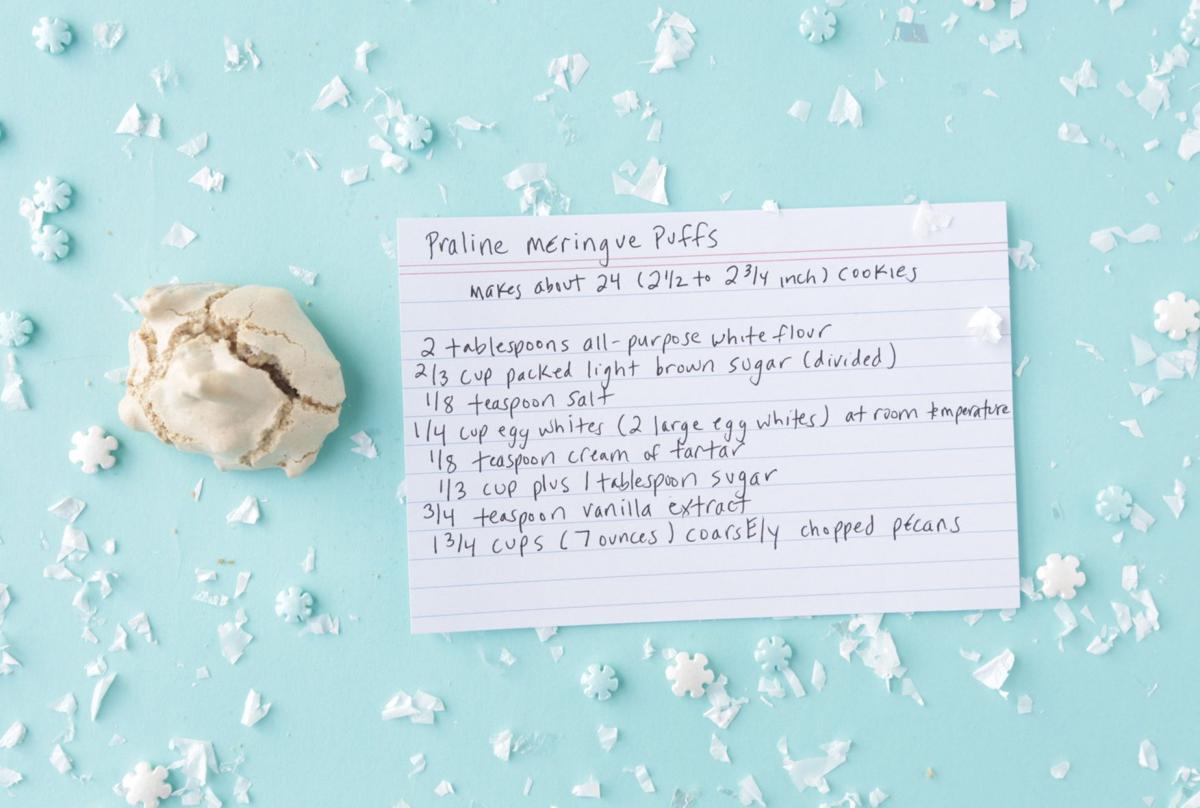 Praline meringue Puffs
makes about 24 (2 1/2 to 2 3/4 inch) cookies
2 tablespoons all-purpose white flour
2/3 cup packed light brown sugar (divided)
1/8 teaspoon salt
1/4 cup egg whites (2 large egg whites) at room temperature
1/8 teaspoon cream of tartar
1/3 cup plus 1 tablespoon sugar
3/4 teaspoon vanilla extract
1 3/4 cups (7 ounces) coarsEly chopped pecans